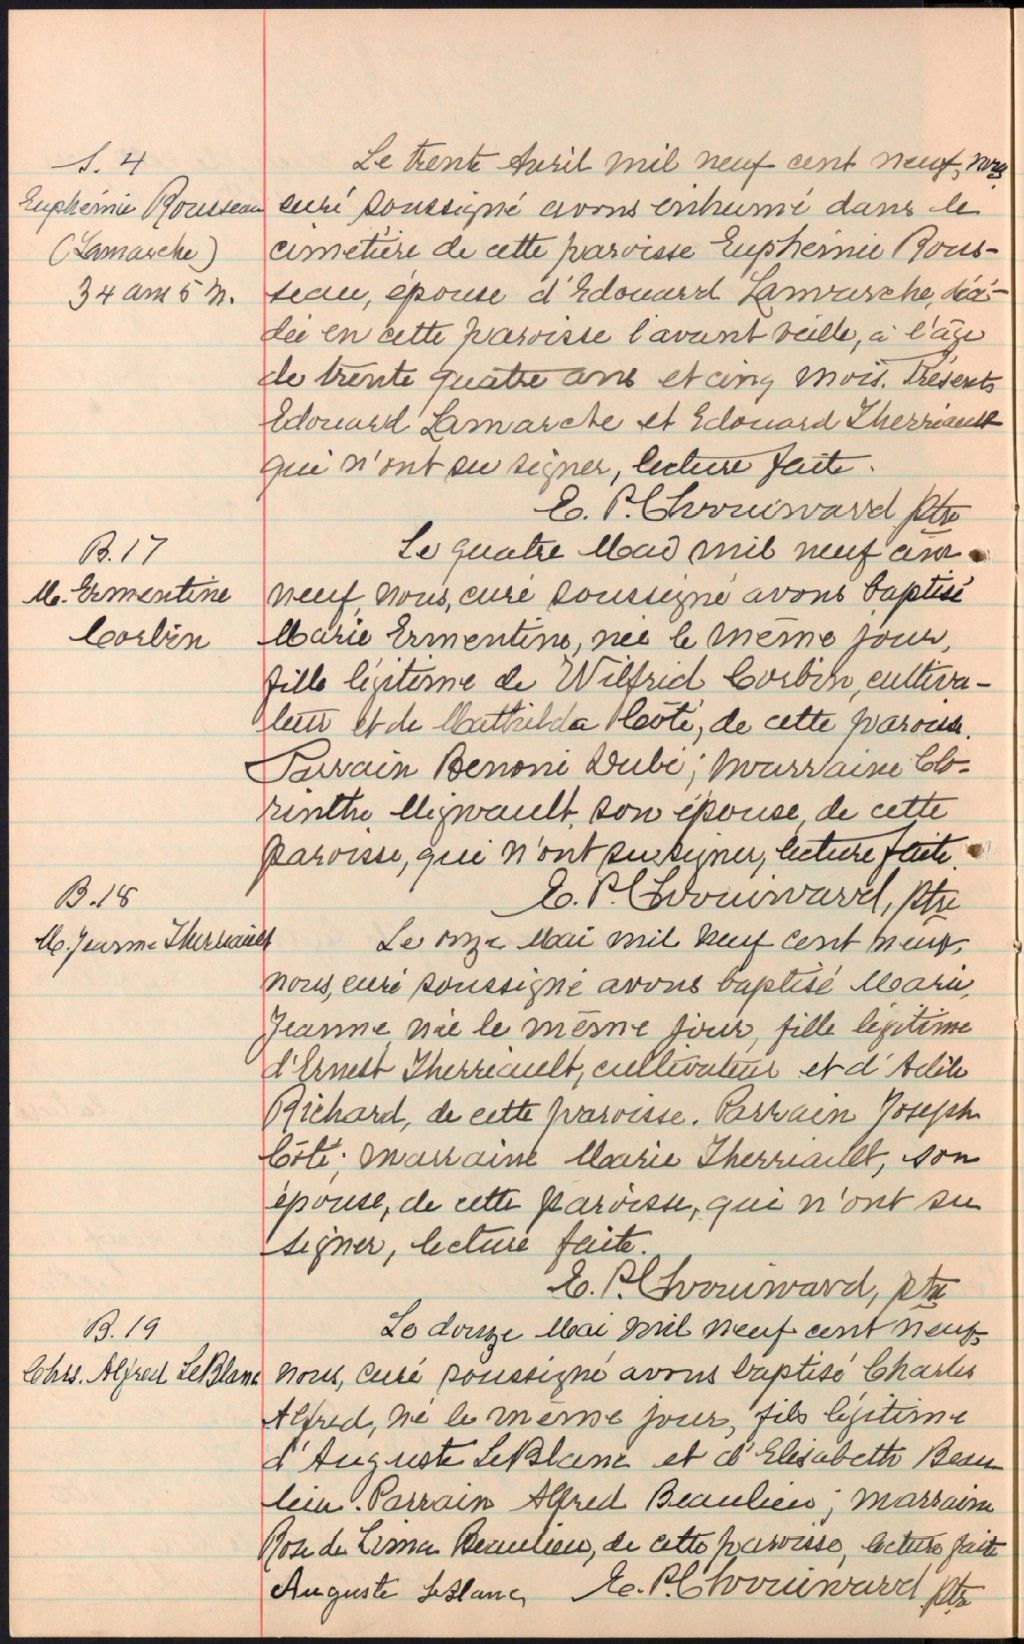 S. 4
Euphémie Rousseau
(Lamarche)
34 ans 5 m.
Le trente Avril mil neuf cent neuf, nous
curé soussigné avons inhumé dans le
cimetière de cette paroisse Euphémie Rous-
seau, épouse d'Edouard Lamarche, décé-
dée en cette paroisse l'avant veille, à l'âge
de trente quatre ans et cinq mois. Présents
Edouard Lamarche et Edouard Therriault
qui n'ont su signer, lecture faite.
E. P. Chouinard ptre
B. 17
M. Ermentine
Corbin
Le quatre Mai mil neuf cent
neuf, nous, curé soussigné avons baptisé
Marie Ermentine, née le même jour,
fille légitime de Wilfrid Corbin, cultiva-
teur et de Mathilda Côté, de cette paroisse.
Parrain Benoni Dubé; marraine Co-
rinthe Mignault, son épouse, de cette
paroisse, qui n'ont su signer, lecture faite.
E. P. Chouinard, ptre
B. 18
M. Jeanne Therriault
Le onze Mai mil neuf cent neuf,
nous, curé soussigné avons baptisé Marie,
Jeanne, née le même jour, fille légitime
d'Ernest Therriault, cultivateur et d'Adèle
Richard, de cette paroisse. Parrain Joseph
Côté; marraine Marie Therriault, son
épouse, de cette paroisse, qui n'ont su
signer, lecture faite.
E. P. Chouinard, ptre
B. 19
Chrs. Alfred LeBlanc
Le douze Mai mil neuf cent neuf,
nous, curé soussigné avons baptisé Charles
Alfred, né le même jour, fils légitime
d'Auguste LeBlanc et d'Elisabeth Beau
lieu. Parrain Alfred Beaulieu; marraine
Rose de Lima Beaulieu, de cette paroisse, lecture faite
Auguste LeBlanc, E. P. Chouinard ptre